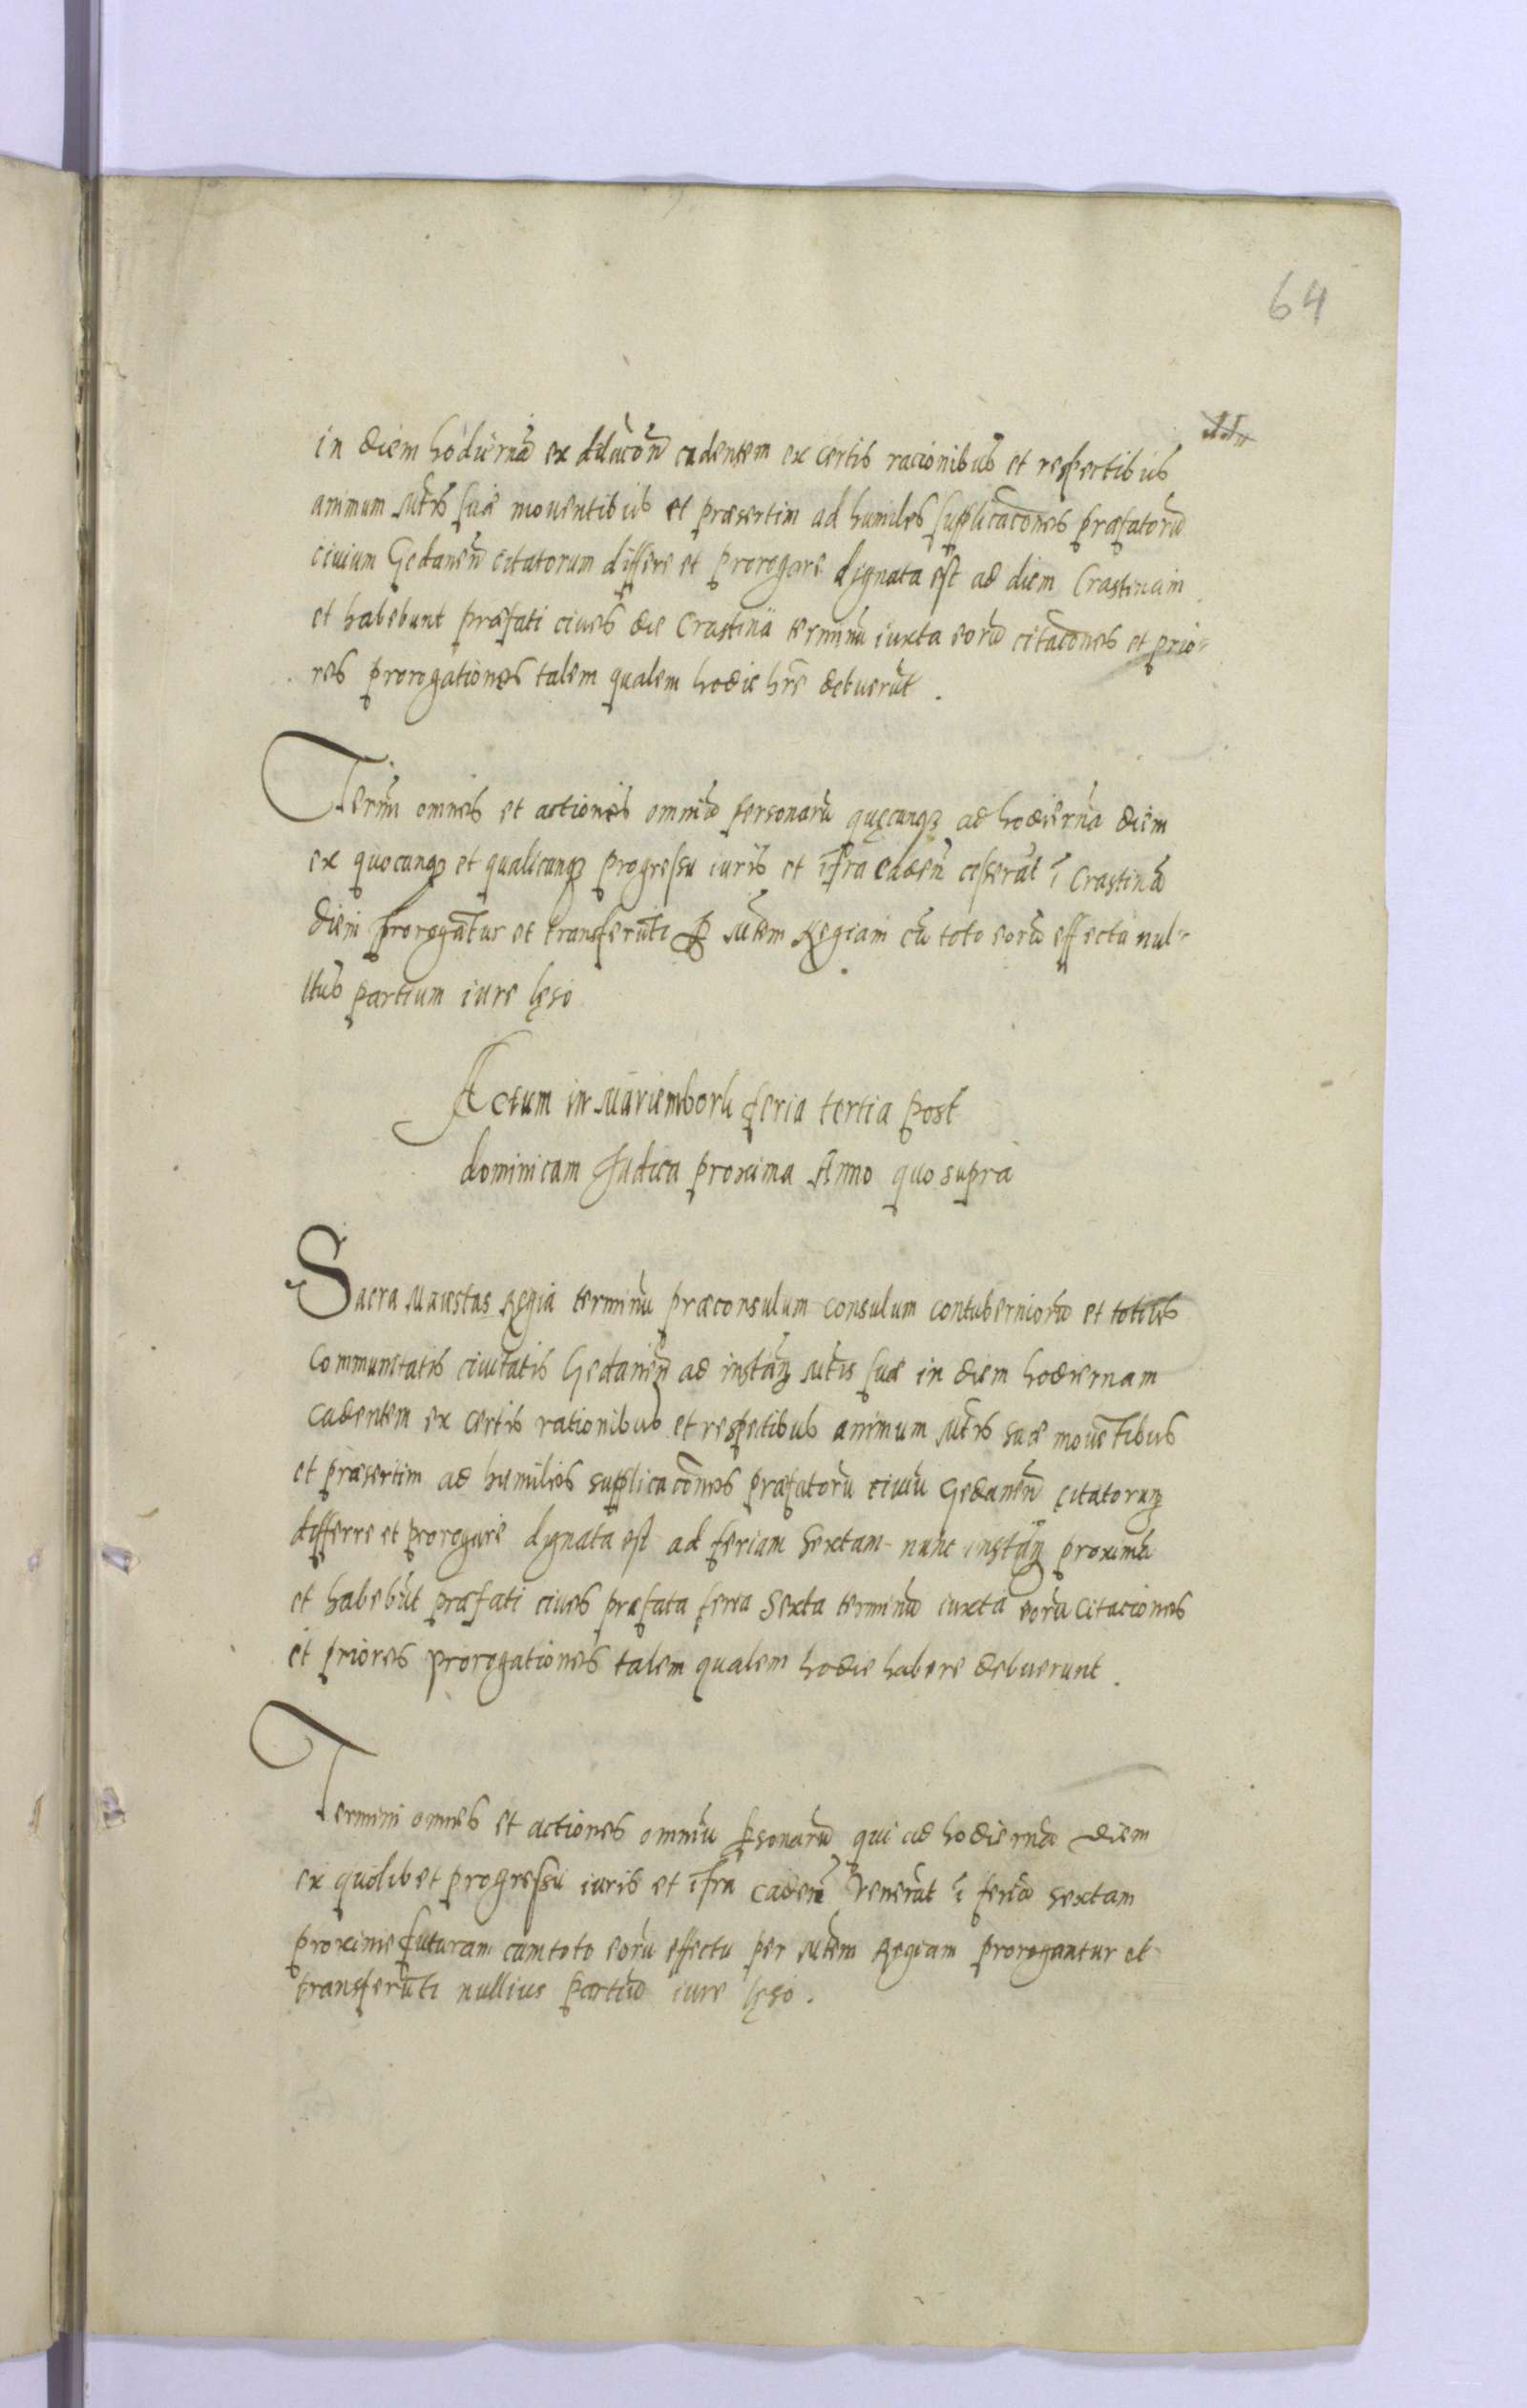 64
in diem hodiernā ex dilacōn cadentem ex certis racionibus et respectibus
animum Mtis suæ mouentibus et præsertim ad humiles supplicacōnes præfatorū
ciuium Gedanen̄ citatorum differe et prorogare dignata est ad diem Crastinam
et habebunt præfati ciues die Crastina terminū iuxta eorū citacōnes et prio-
res prorogationes talem qualem hodie hr̄e debuerūt.
Termī omnes et actiones omniū personarū quęcunqꝫ ad hodiernā diem
ex quocunqꝫ et qualicunqꝫ progressu iuris et ifra cadeñ cesserāt ī Crastinā
diem prorogāntur et transferūtr ꝑ Mtem Regiam cū toto eorū effectu nul-
lius partium iure lęso
Actum in Mariembork feria tertia post
dominicam Judica proxima Anno quo supra
Sacra Maiestas Regia terminū præconsulum consulum contuberniorū et totius
Communitatis ciuitatis Gedaneñ ad instāꝫ Mtis suæ in diem hodiernam
Cadentem ex certis rationibus et respectibus animum Mtis suæ mouētibus
et præsertim ad humiles supplicacōnes præfatorū ciuiū Gedaneñ citatorꝫ
differre et prorogare dignata est ad feriam sextam nunc instāꝫ proximā
et habebūt præfati ciues præfata feria Sexta terminū iuxta eorū Citaciones
et priores prorogationes talem qualem hodie habere debuerunt.
Termini omnes et actiones omniū ꝑsonarū qui ad hodiernā diem
ex quolibet progressu iuris et ifra cadeñ venerāt ī feriā sextam
proxime futuram cum toto eorū effectu per Mtem Regiam prorogantur et
transferūtr nullius partiū iure lęso.